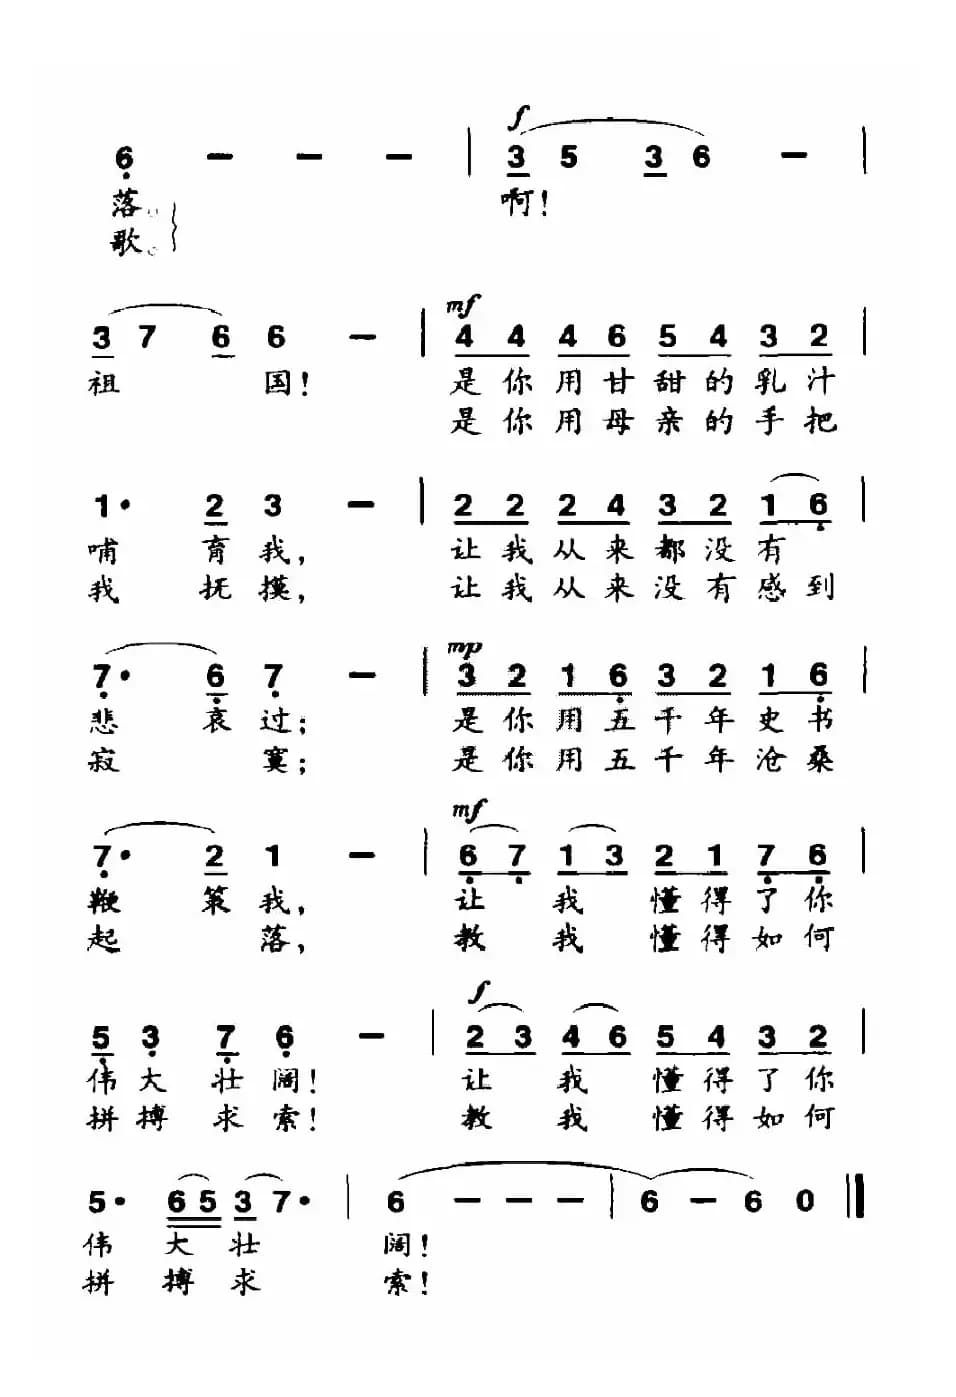 f
6̣ — — — | 3 5 3 6 — |
落。 啊!
歌。
mf
3 7 6 6 — | 4 4 4 6 5 4 3 2 |
祖 国! 是你用甘甜的乳汁
是你用母亲的手把
1· 2 3 — | 2 2 2 4 3 2 1 6̣ |
哺 育我, 让我从来都没有
我 抚摸, 让我从来没有感到
mp
7̣· 6̣ 7̣ — | 3 2 1 6̣ 3 2 1 6̣ |
悲 哀过; 是你用五千年史书
寂 寞; 是你用五千年沧桑
mf
7̣· 2 1 — | 6̣ 7̣ 1 3 2 1 7̣ 6̣ |
鞭 策我, 让 我 懂得了你
起 落, 教 我 懂得如何
f
5̣ 3̣ 7̣ 6̣ — | 2 3 4 6 5 4 3 2 |
伟大 壮阔! 让 我 懂得了你
拼搏 求索! 教 我 懂得如何
5· 6 5 3 7· | 6 — — — | 6 — 6 0 ‖
伟 大 壮 阔!
拼 搏 求 索!